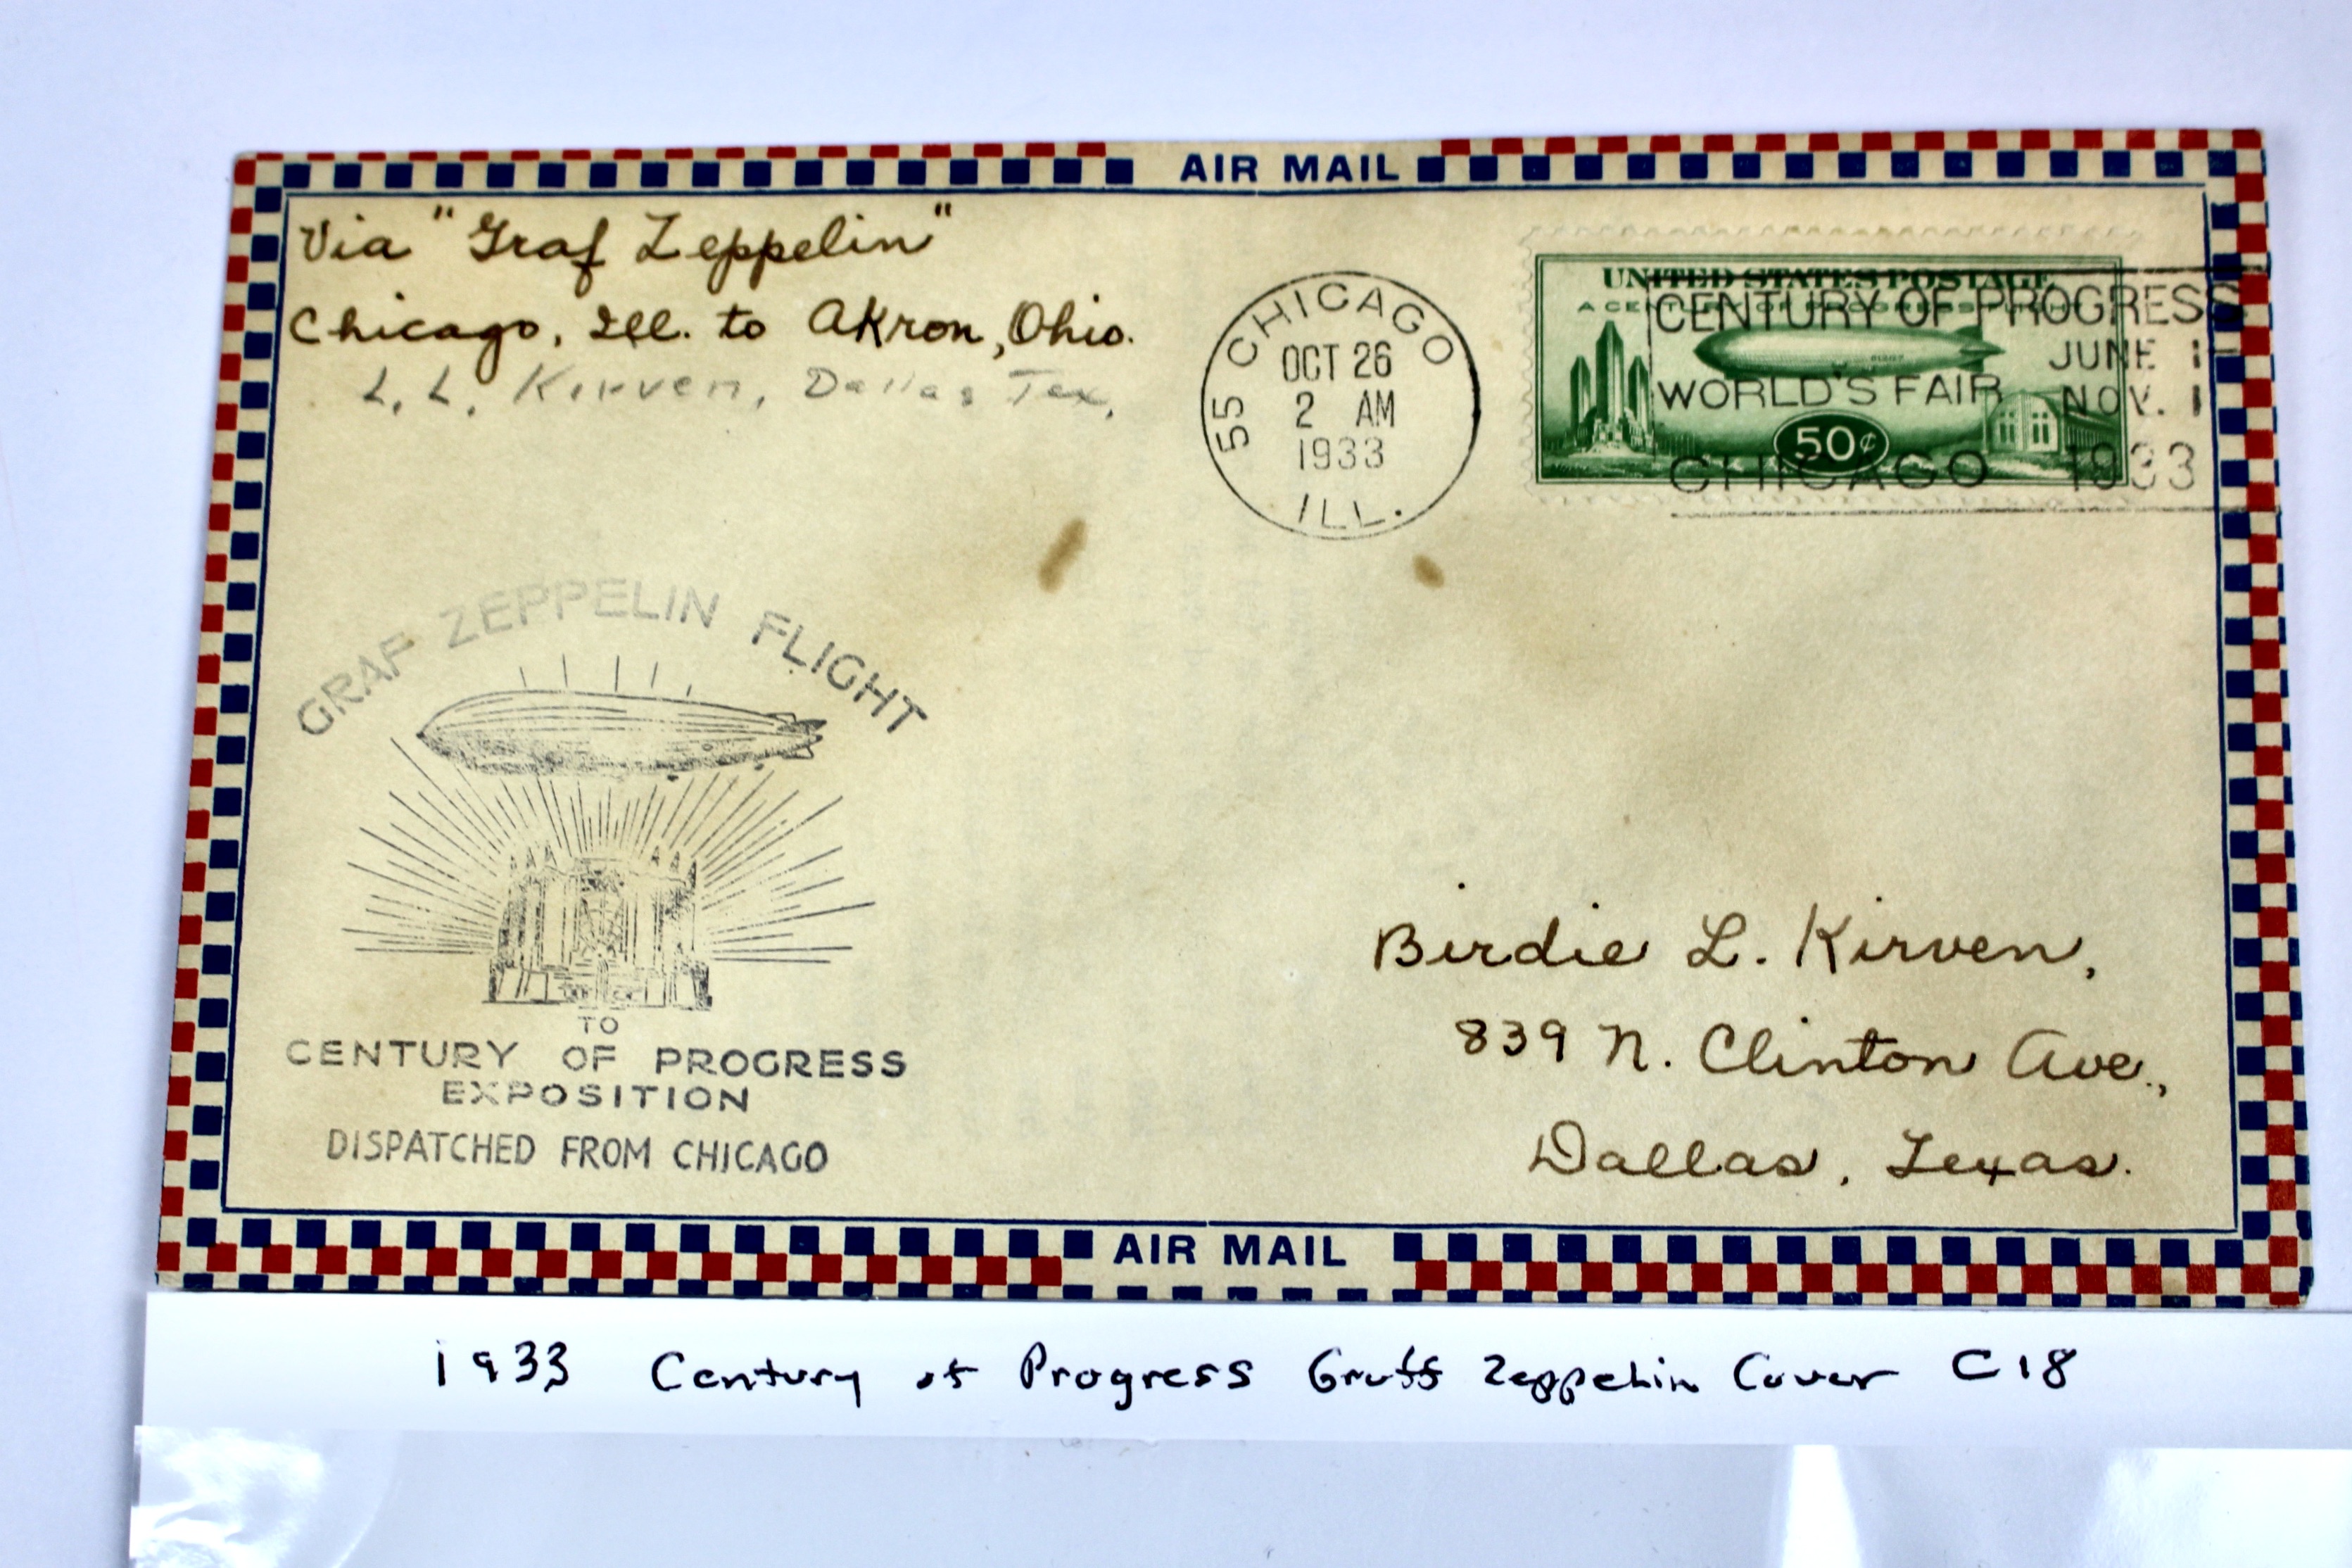 AIR MAIL
Via "Graf Zeppelin"
Chicago, Ill. to Akron, Ohio.
L. L. Kirven, Dallas Tex.
55 CHICAGO
OCT 26
2 AM
1933
ILL.
UNITED STATES POSTAGE
A CENTURY OF PROGRESS FLIGHT
50¢
CENTURY OF PROGRESS
JUNE 1
WORLD'S FAIR
NOV. 1
CHICAGO 1933
GRAF ZEPPELIN FLIGHT
TO
CENTURY OF PROGRESS
EXPOSITION
DISPATCHED FROM CHICAGO
Birdie L. Kirven,
839 N. Clinton Ave.,
Dallas, Texas.
AIR MAIL
1933 Century of Progress Graff Zeppelin Cover C18